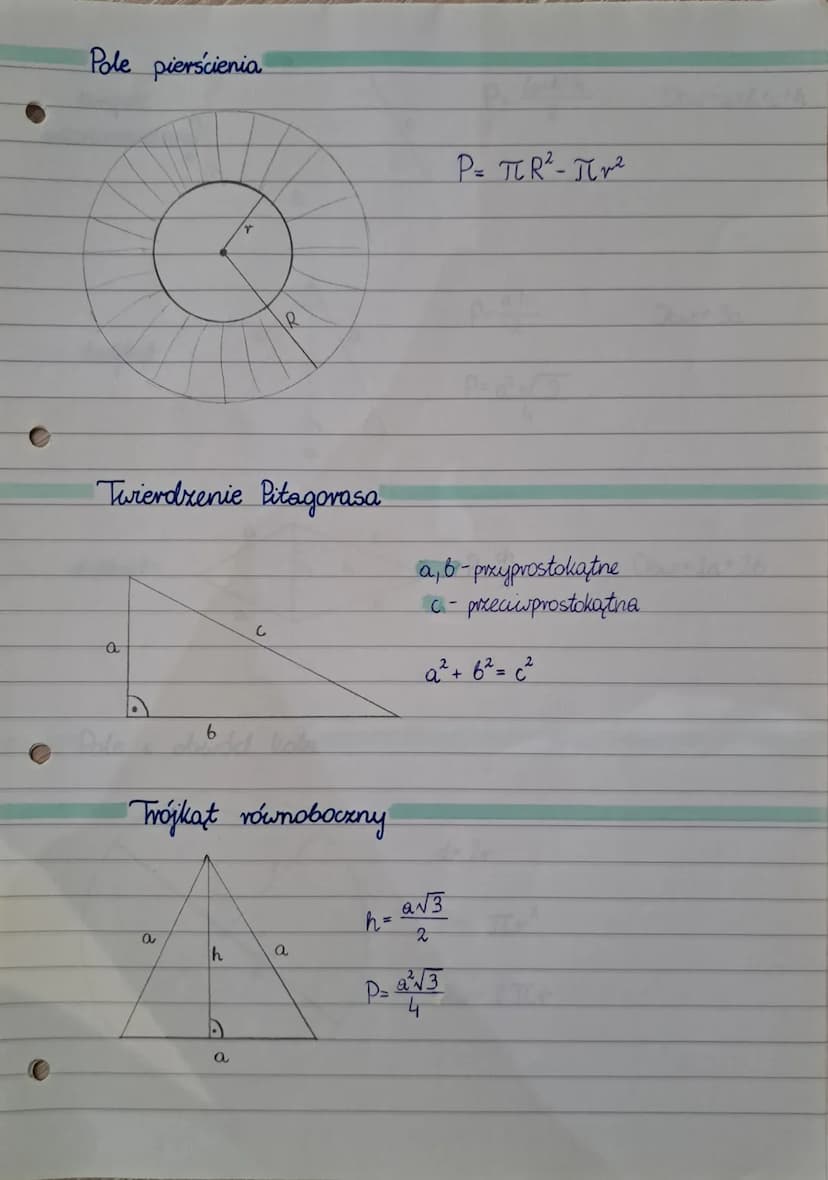 Pole pierścienia
P= πR²-πr²
r
R
Twierdzenie Pitagorasa
a,b-przyprostokątne
c- przeciwprostokątna
a
c
a²+b²=c²
b
Trójkąt równoboczny
h= a√3/2
a
h
a
P= a²√3/4
a